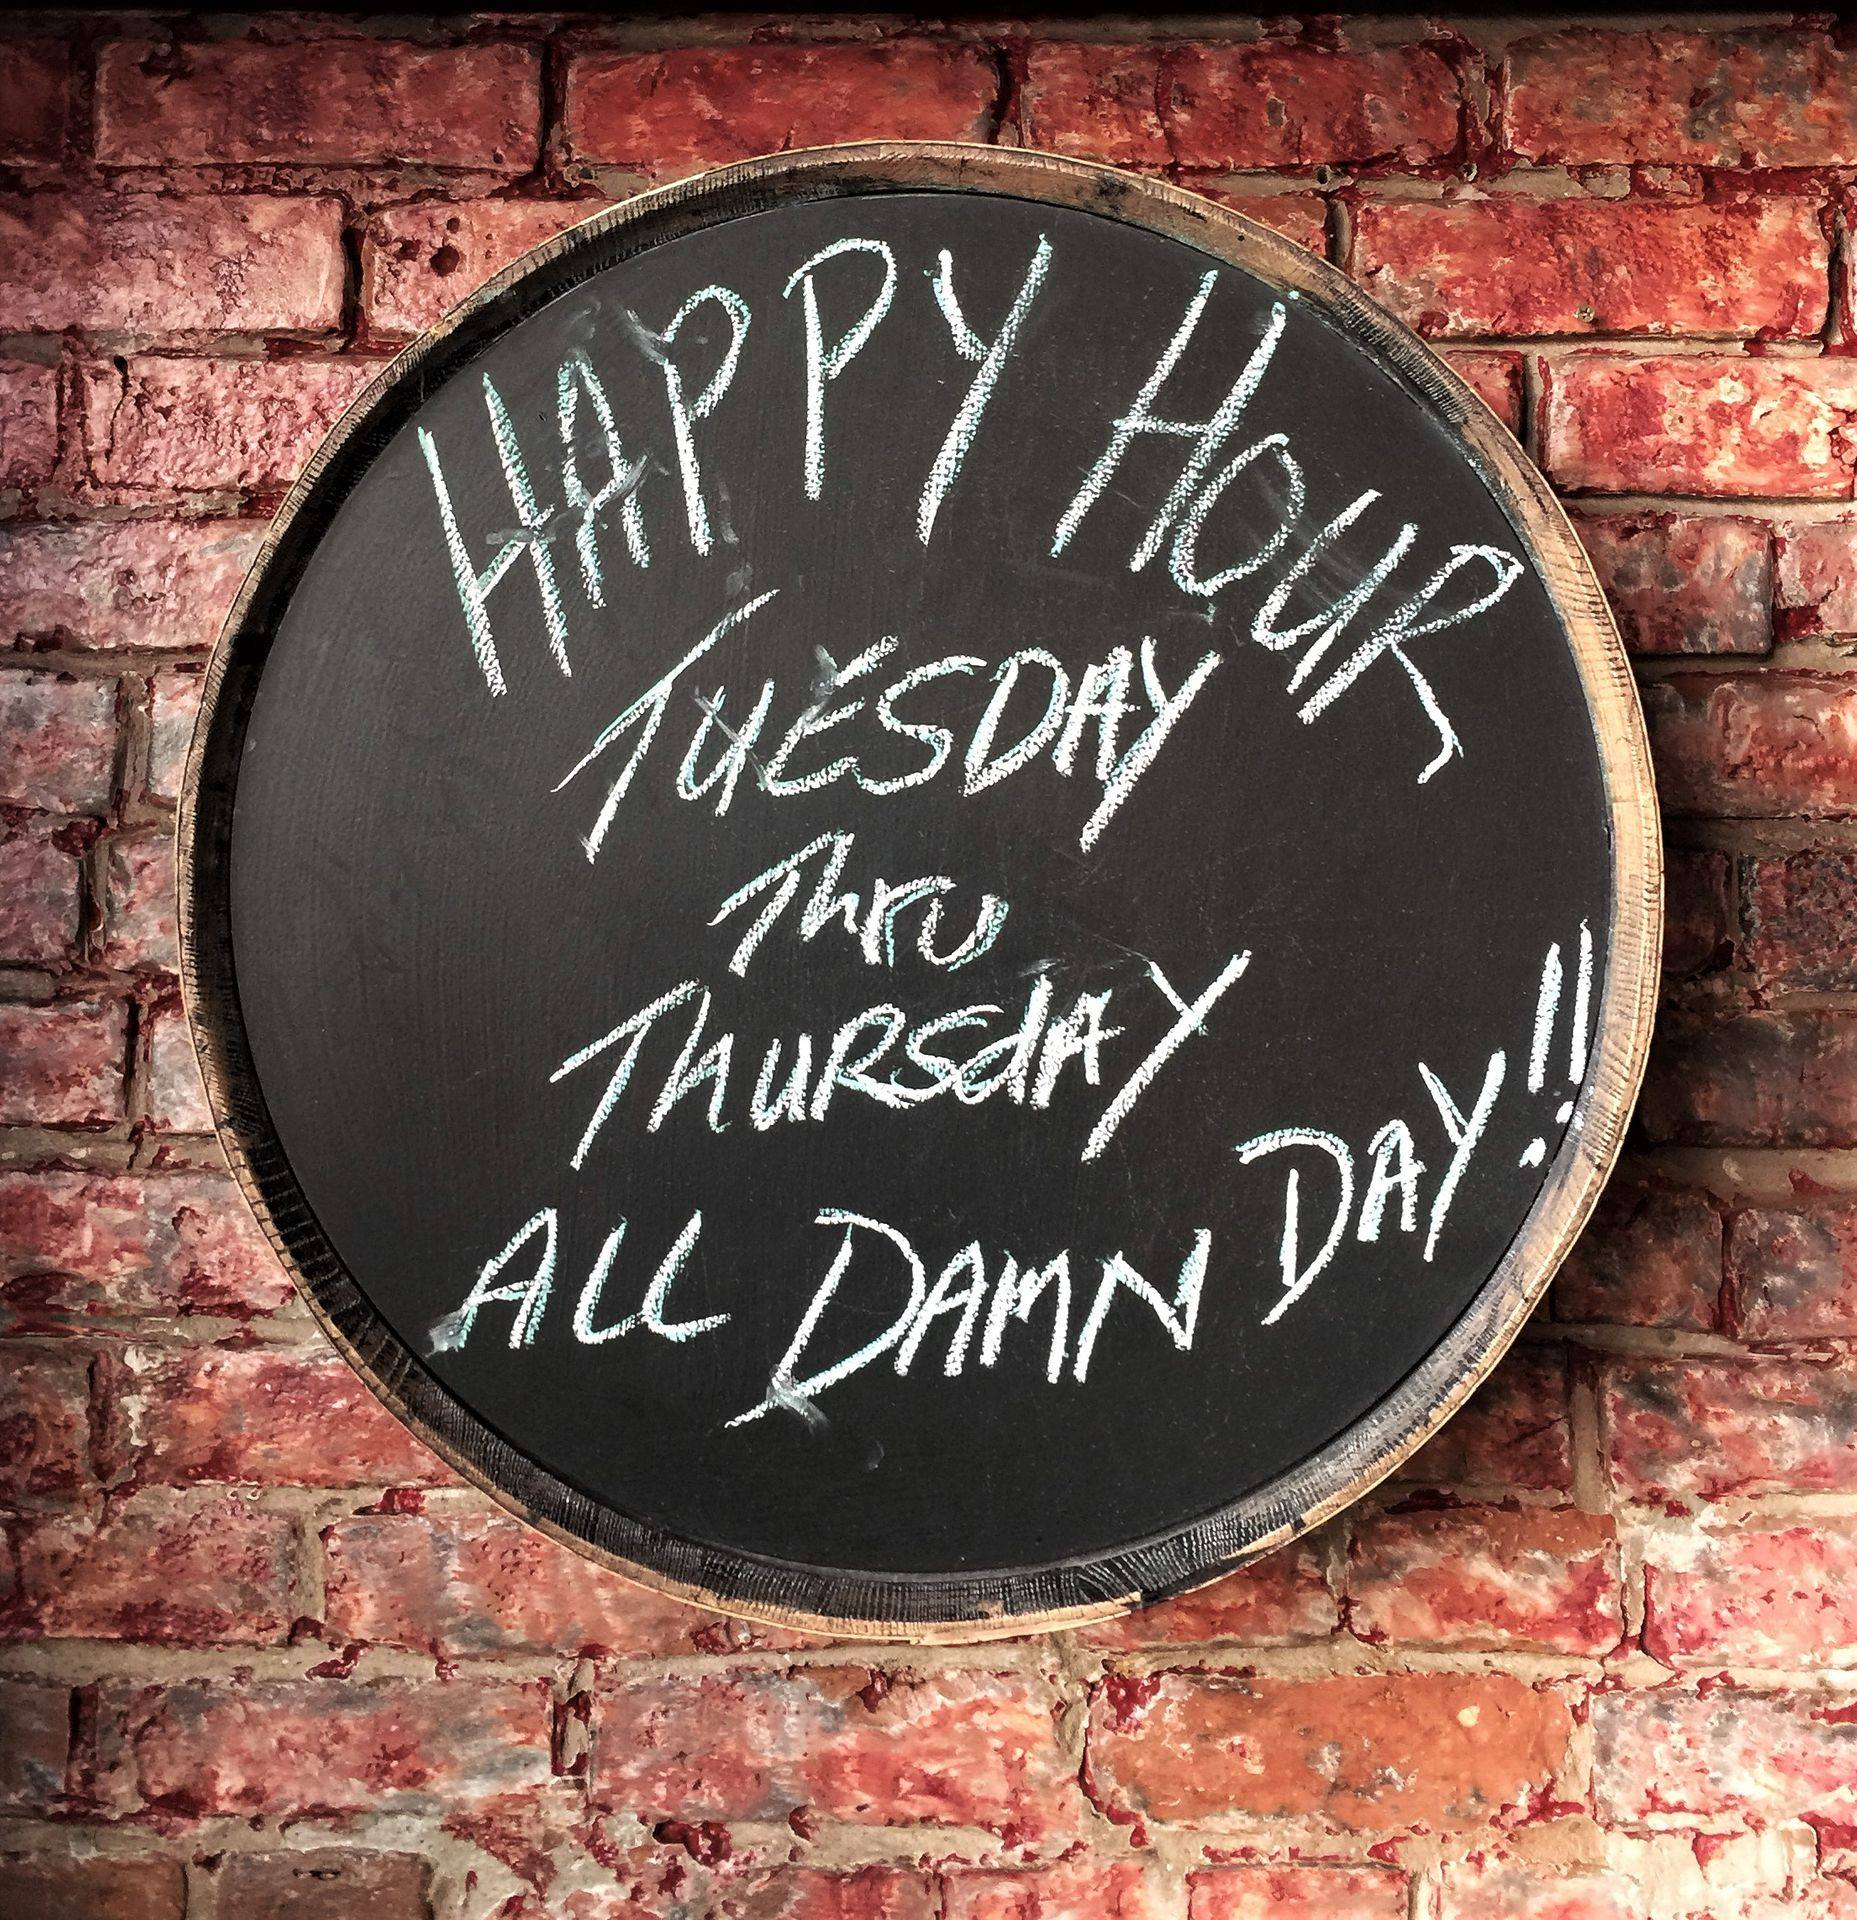 HAPPY HOUR
TUESDAY
Thru
THURSdAY
ALL DAMN DAY!!